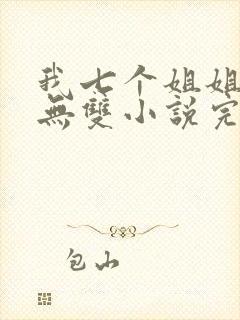 我七个姐姐
無雙小說完
包山